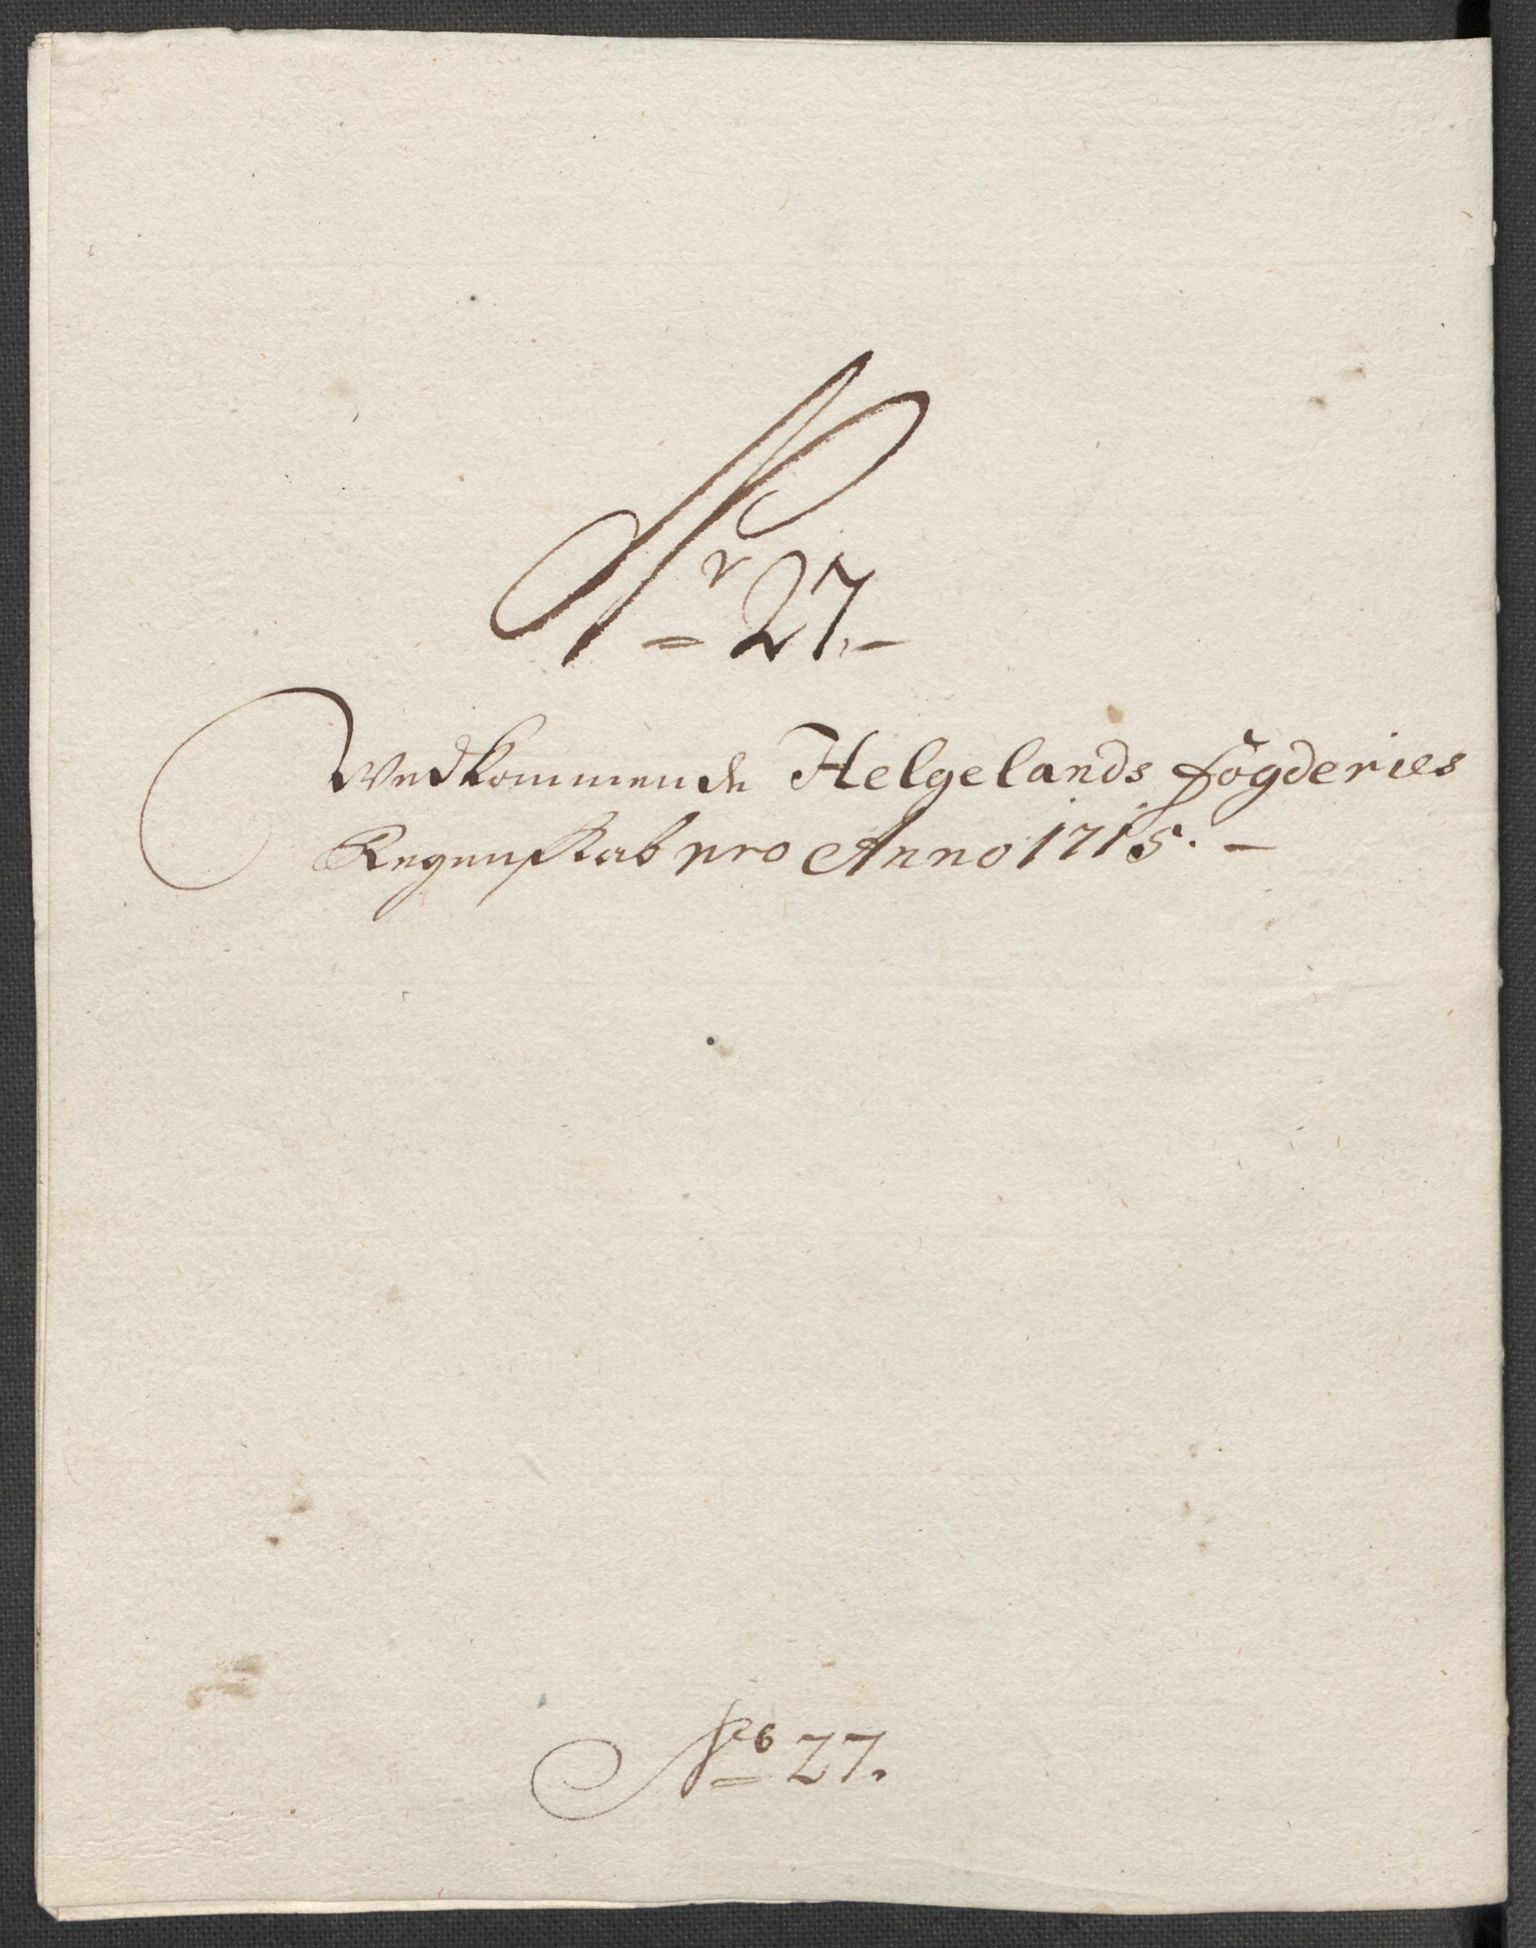 Nr 27.-
Wedkommende Helgelands fögderies
Regenskab pro Anno 1715. -
No 27.